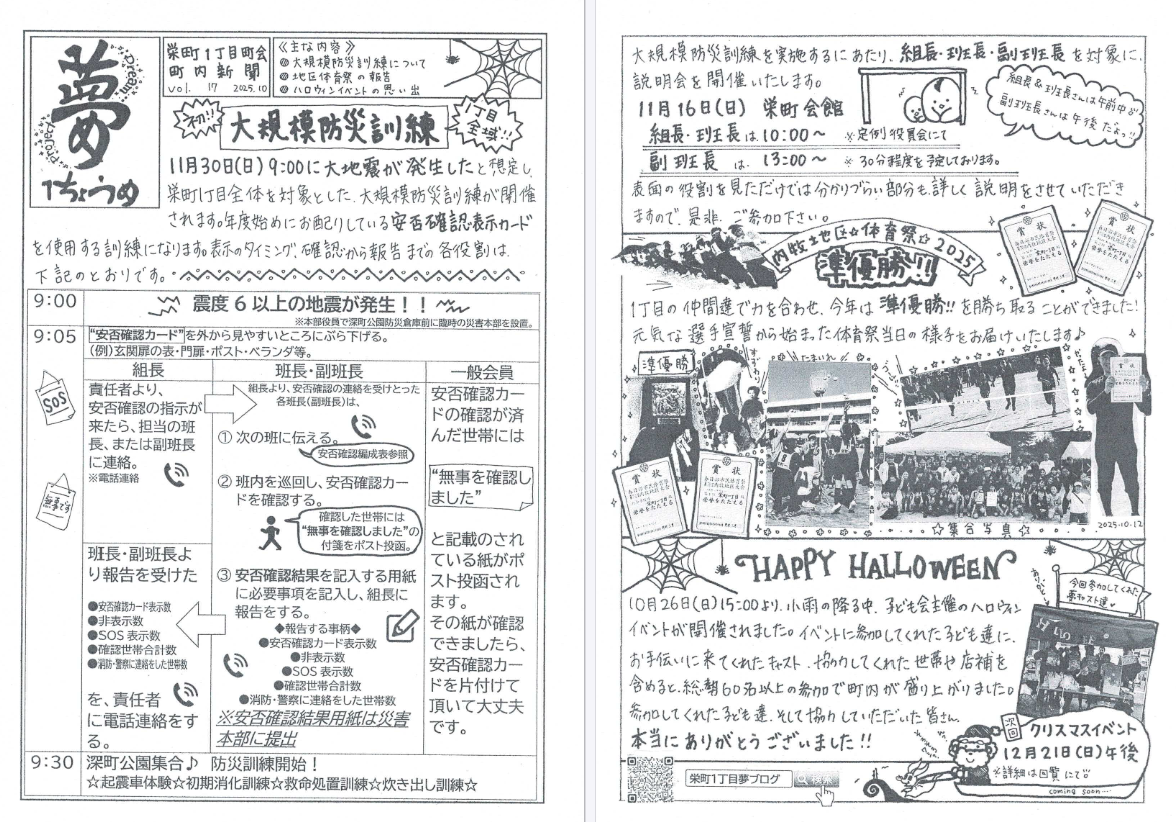 夢
Dream
PROJECT
1ちょうめ
栄町1丁目町会
町内新聞
vol. 17 2025.10
≪主な内容≫
◎大規模防災訓練について
◎地区体育祭の報告
◎ハロウィンイベントの思い出
初!!
大規模防災訓練
1丁目
全域!!
11月30日(日)9:00に大地震が発生したと想定し、
栄町1丁目全体を対象とした、大規模防災訓練が開催
されます。年度始めにお配りしている安否確認表示カード
を使用する訓練になります。表示のタイミング、確認から報告までの各役割は、
下記のとおりです。
9:00
震度6以上の地震が発生!!
※本部役員で深町公園防災倉庫前に臨時の災害本部を設置。
9:05
“安否確認カード”を外から見やすいところにぶら下げる。
(例)玄関扉の表・門扉・ポスト・ベランダ等。
SOS
無事です
組長
責任者より、
安否確認の指示が
来たら、担当の班
長、または副班長
に連絡。
※電話連絡
班長・副班長よ
り報告を受けた
●安否確認カード表示数
●非表示数
●SOS表示数
●確認世帯合計数
●消防・警察に連絡をした世帯数
を、責任者
に電話連絡をす
る。
班長・副班長
組長より、安否確認の連絡を受けとった
各班長(副班長)は、
① 次の班に伝える。
安否確認編成表参照
② 班内を巡回し、安否確認カー
ドを確認する。
確認した世帯には
“無事を確認しました”の
付箋をポスト投函。
③ 安否確認結果を記入する用紙
に必要事項を記入し、組長に
報告をする。
◆報告する事柄◆
●安否確認カード表示数
●非表示数
●SOS表示数
●確認世帯合計数
●消防・警察に連絡をした世帯数
※安否確認結果用紙は災害
本部に提出
一般会員
安否確認カー
ドの確認が済
んだ世帯には
“無事を確認し
ました”
と記載のされ
ている紙がポ
スト投函され
ます。
その紙が確認
できましたら、
安否確認カー
ドを片付けて
頂いて大丈夫
です。
9:30
深町公園集合♪ 防災訓練開始!
☆起震車体験☆初期消化訓練☆救命処置訓練☆炊き出し訓練☆
大規模防災訓練を実施するにあたり、組長・班長・副班長を対象に、
説明会を開催いたします。
11月16日(日) 栄町会館
組長・班長は10:00〜 ※定例役員会にて
副班長は、13:00〜 ※30分程度を予定しております。
組長&班長さんは午前中♪
副班長さんは午後だよっ!!
表面の役割を見ただけでは分かりづらい部分も詳しく説明をさせていただき
ますので、是非、ご参加下さい。
内牧地区☆体育祭☆2025
準優勝!!
1丁目の仲間達で力を合わせ、今年は準優勝!!を勝ち取ることができました!
元気な選手宣誓から始まった体育祭当日の様子をお届けいたします♪
準優勝
たまいれ
賞状
賞状
賞状
☆集合写真☆
2025.10.12
HAPPY HALLOWEEN
10月26日(日)15:00より、小雨の降る中、子ども会主催のハロウィン
イベントが開催されました。イベントに参加してくれた子ども達に、
お手伝いに来てくれたキャスト、協力してくれた世帯や店舗を
含めると、総勢60名以上の参加で町内が盛り上がりました。
参加してくれた子ども達、そして協力していただいた皆さん
本当にありがとうございました!!
ありがとう
今回参加してくれた
夢キャスト達♥
次回
クリスマスイベント
12月21日(日)午後
※詳細は回覧にて♡
coming soon…
栄町1丁目夢ブログ
検索